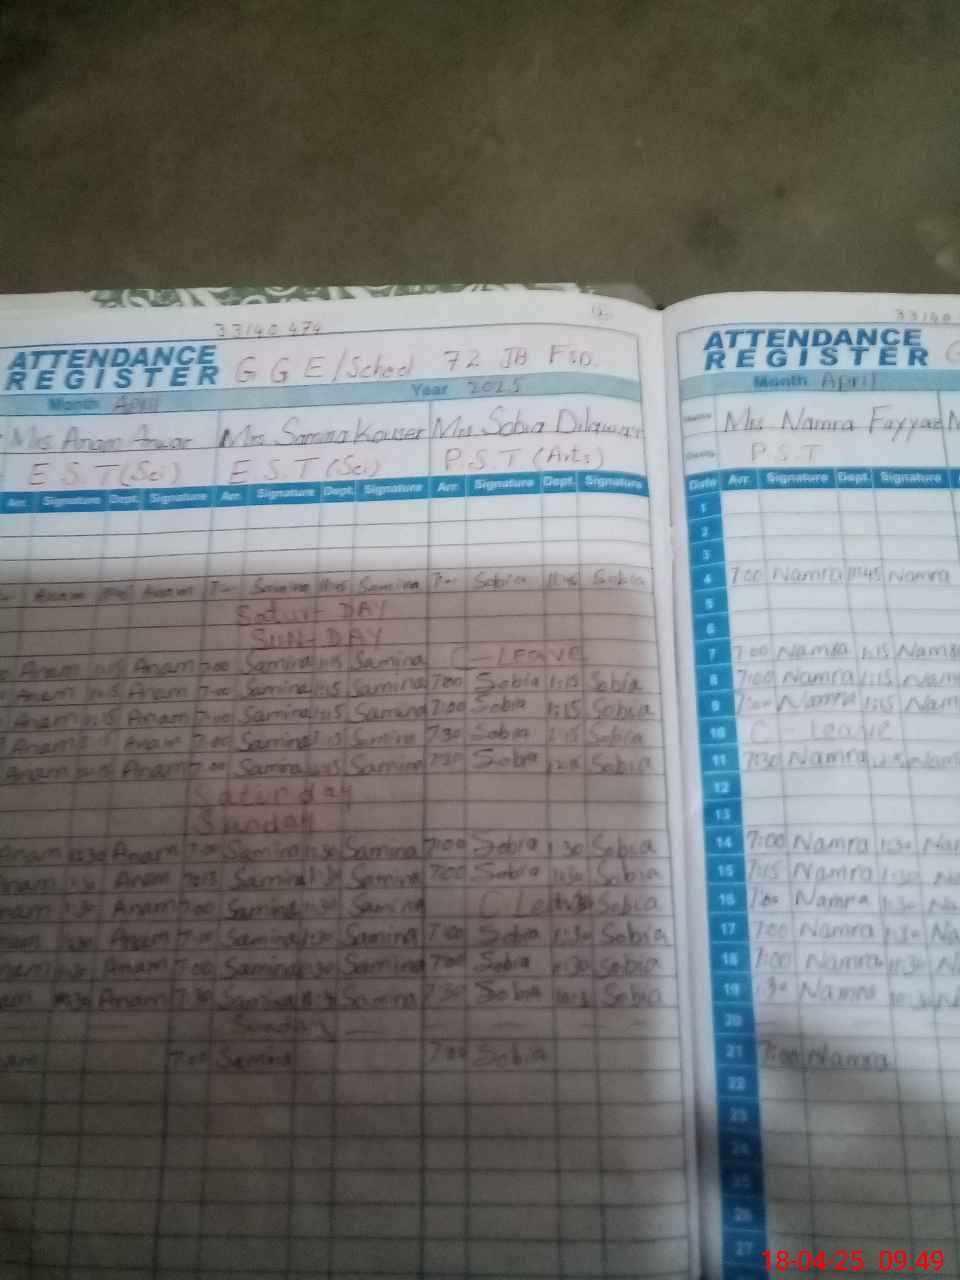 33140474
ATTENDANCE REGISTER G G E/School 72 JB FSD.
Month April Year 2025
Mrs Anam Anwar Mrs Samina Kouser Mrs Sobia Dilawar
E S.T (Sci) E S.T (Sci) P.S.T (Arts)
Arr. Signature Dept. Signature Arr. Signature Dept. Signature Arr. Signature Dept. Signature
Anam 11:45 Anam Samina 11:45 Samina Sobia 11:45 Sobia
Satur-DAY
SUN-DAY
Anam 1:15 Anam 7:00 Samina 1:15 Samina C-Leave
Anam 1:15 Anam 7:00 Samina 1:15 Samina 7:00 Sobia 1:15 Sobia
Anam 1:15 Anam 7:00 Samina 1:15 Samina 7:00 Sobia 1:15 Sobia
Anam Anam 7:00 Samina 1:15 Samina 7:30 Sobia 1:15 Sobia
Anam Anam 7:00 Samina Samina 7:30 Sobia Sobia
Saturday
Sunday
Anam Anam 7:00 Samina 1:30 Samina 7:00 Sobia 1:30 Sobia
Anam 1:30 Anam Samina 1:30 Samina 7:00 Sobia 1:30 Sobia
Anam 1:30 Anam 7:00 Samina 1:30 Samina C Leave Sobia
Anam 1:30 Anam 7:00 Samina 1:30 Samina 7:00 Sobia 1:30 Sobia
Anam Anam 7:00 Samina Samina 7:00 Sobia Sobia
Anam Anam 7:30 Samina Samina 7:30 Sobia Sobia
Sunday — — — — —
7:00 Samina 7:00 Sobia
33140
ATTENDANCE REGISTER G
Month April
Mrs Namra Fayyaz
P.S.T
Date Arr. Signature Dept. Signature
1
2
3
4 7:00 Namra 11:45 Namra
5
6
7 7:00 Namra 1:15 Namra
8 7:00 Namra 1:15 Nam
9 7:00 Namra 1:15 Nam
10 C - Leave
11 7:30 Namra Nam
12
13
14 7:00 Namra 1:30 Na
15 7:15 Namra 1:30 Na
16 Namra 1:30 Na
17 7:00 Namra 1:30 Na
18 7:00 Namra N
19 Namra N
20
21 7:00 Namra
22
23
24
25
26
27
18-04-25 09.49